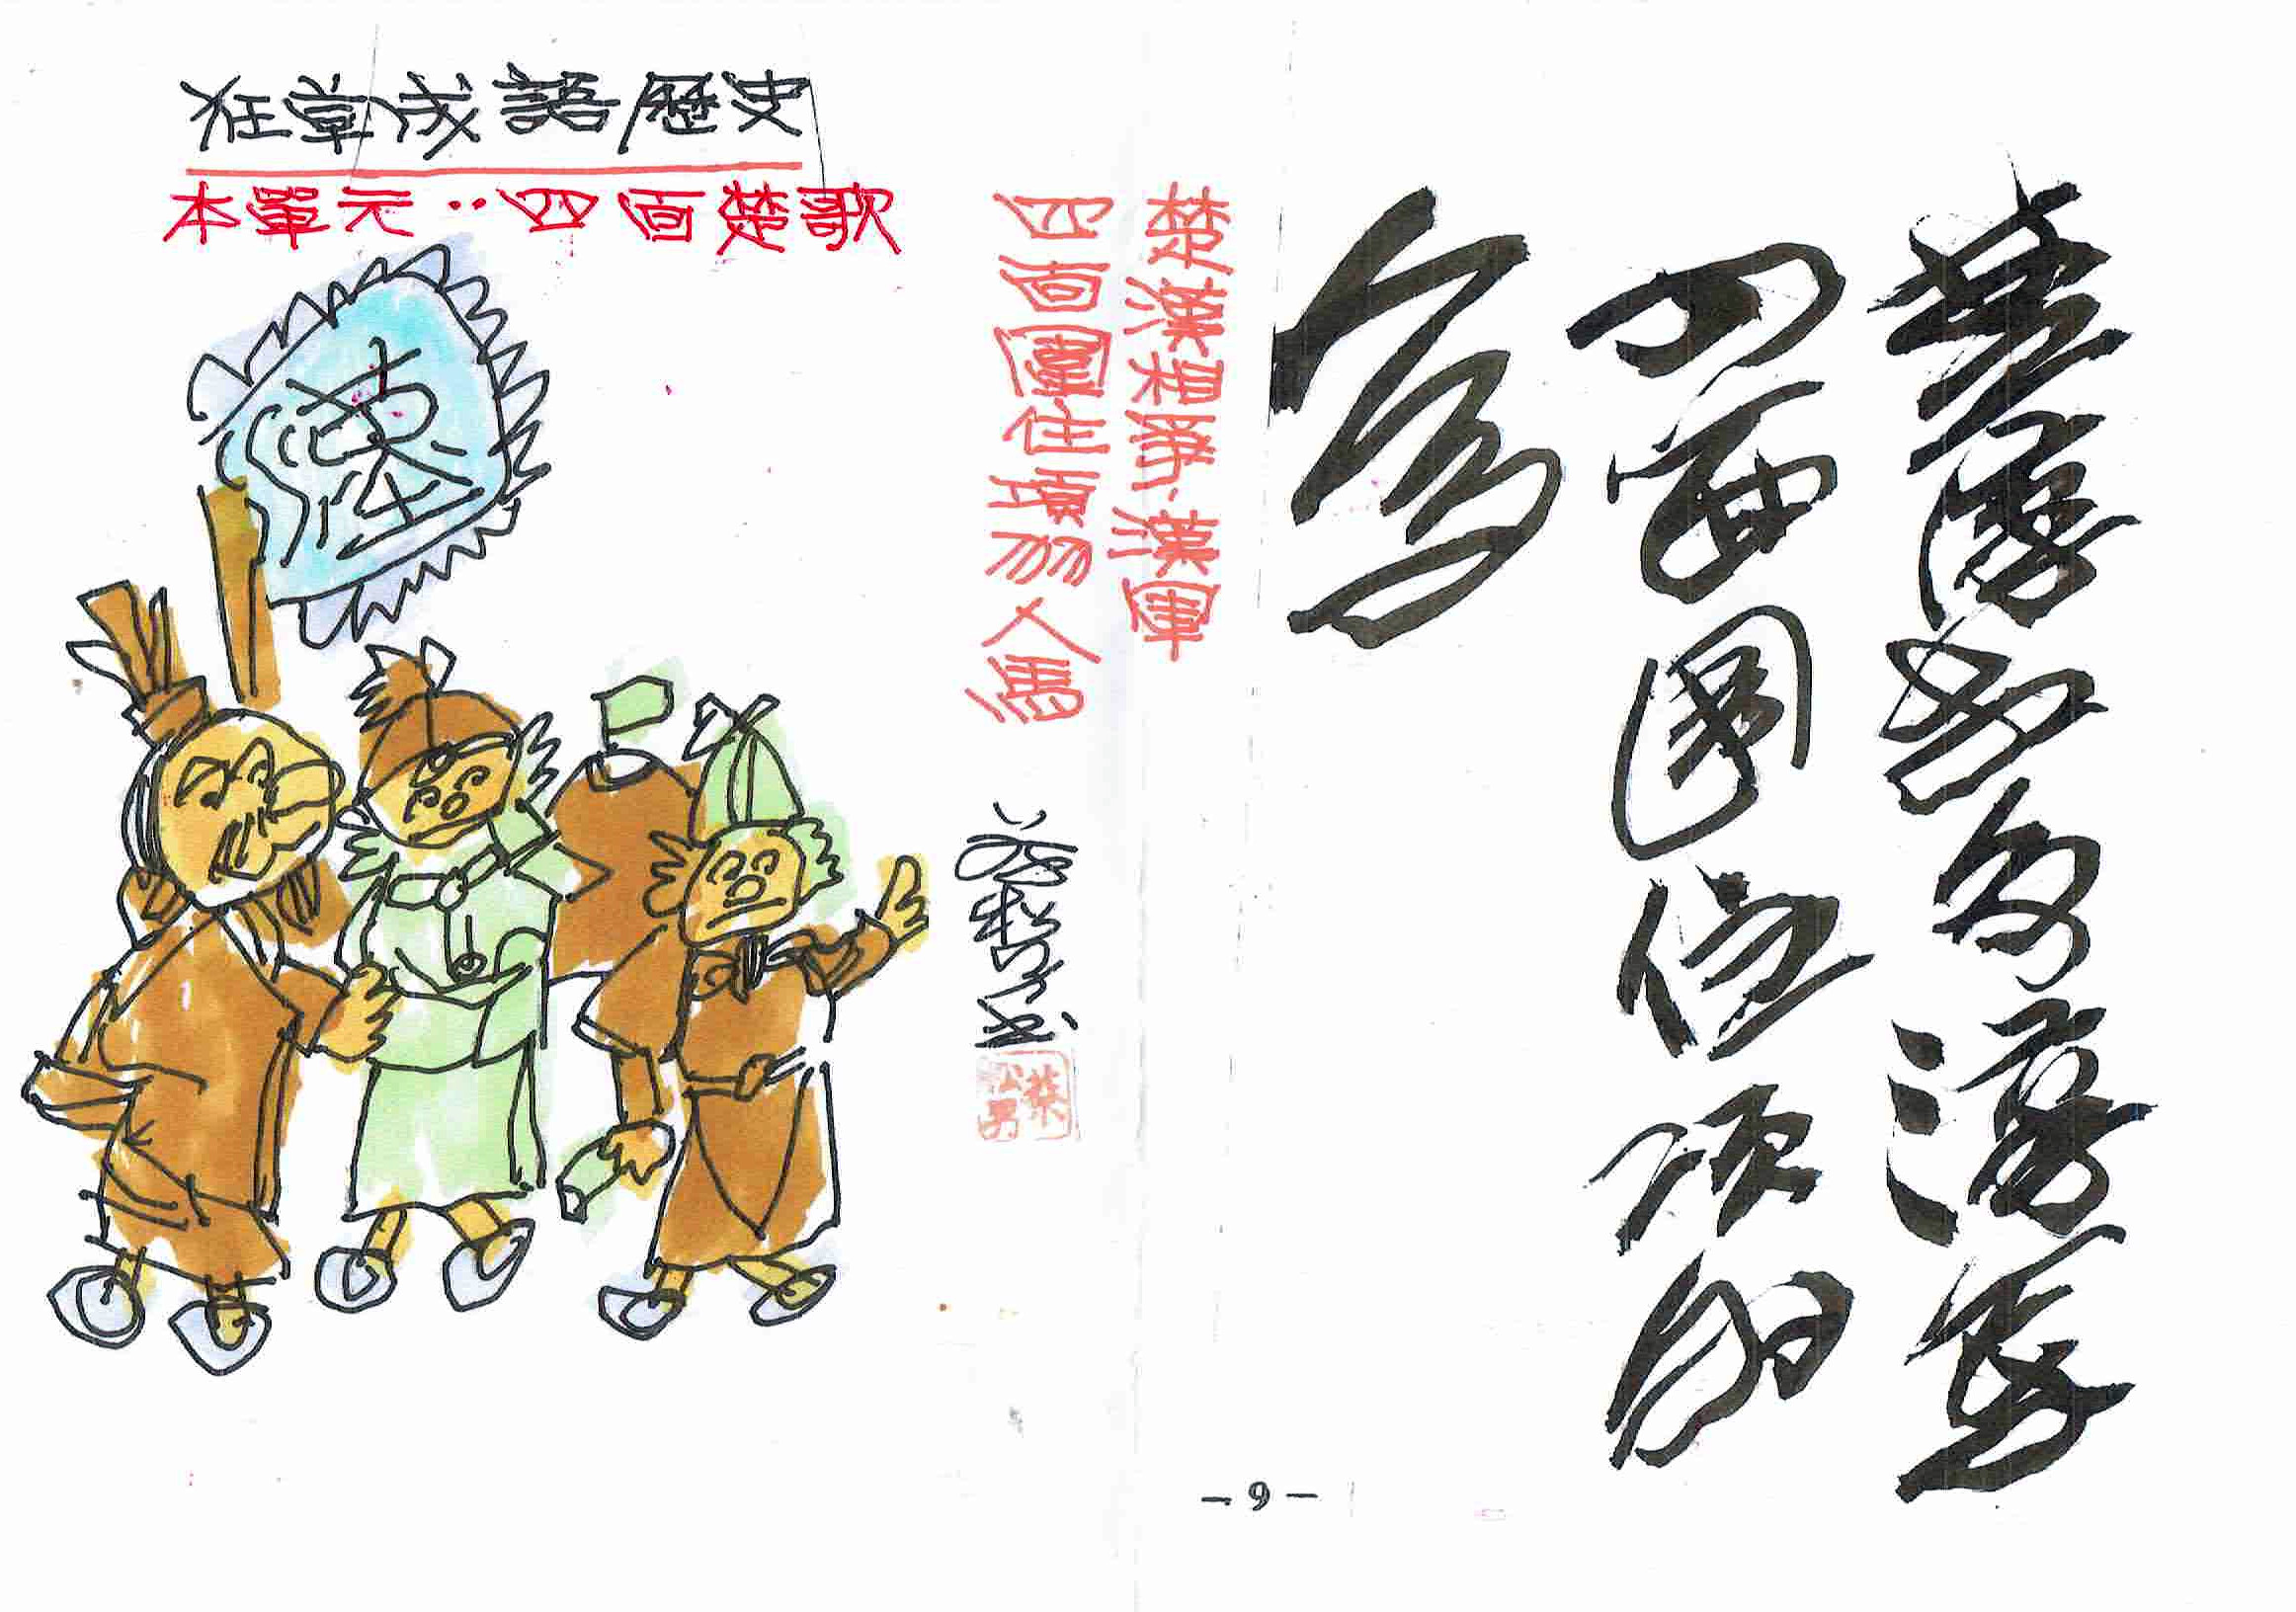 狂草成語歷史
本單元：四面楚歌
漢
楚漢相爭、漢軍
四面圍住項羽人馬
楚漢相爭漢軍
四面圍住項羽
人馬
蔡松男
－9－